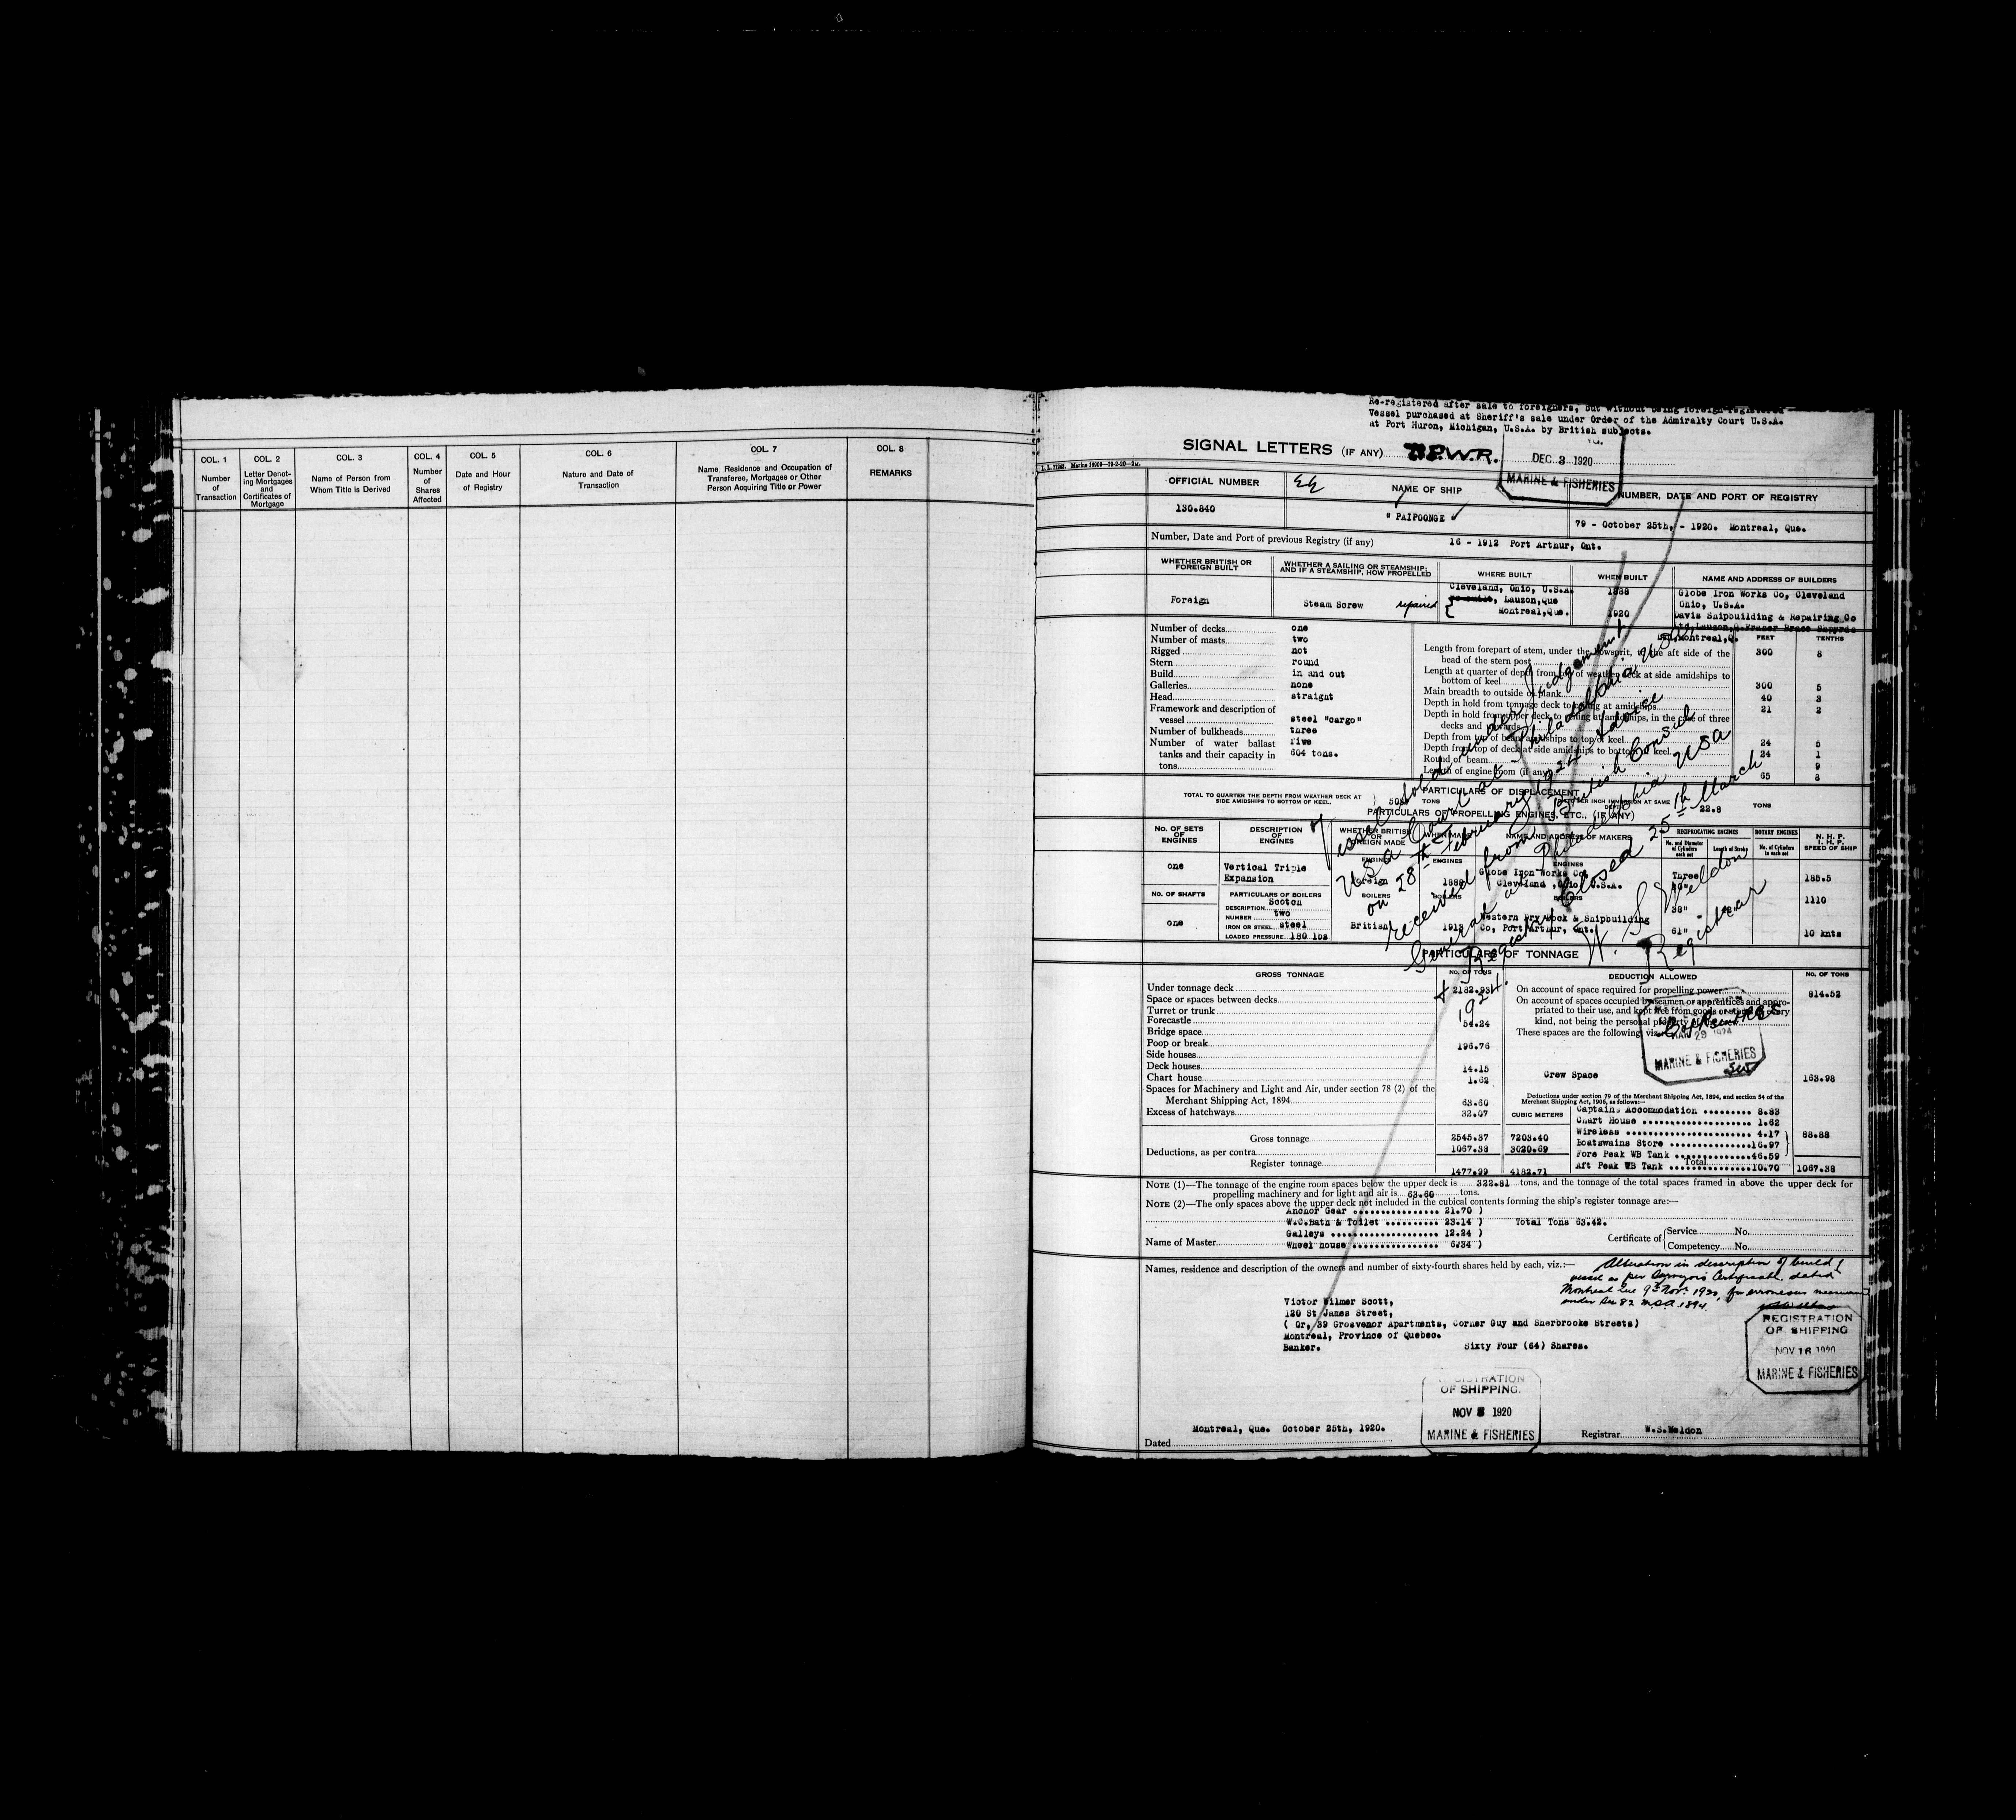 COL. 1 COL. 2 COL. 3 COL. 4 COL. 5 COL. 6 COL. 7 COL. 8
Number of Transaction
Letter Denoting Mortgages and Certificates of Mortgage
Name of Person from Whom Title is Derived
Number of Shares Affected
Date and Hour of Registry
Nature and Date of Transaction
Name, Residence and Occupation of Transferee, Mortgagee or Other Person Acquiring Title or Power
REMARKS
Re-registered after sale to foreigners, but without being foreign registered
Vessel purchased at Sheriff's sale under Order of the Admiralty Court U.S.A.
at Port Huron, Michigan, U.S.A. by British subjects.
SIGNAL LETTERS (IF ANY) P.W.R.
DEC 3 1920
MARINE & FISHERIES
OFFICIAL NUMBER NAME OF SHIP NUMBER, DATE AND PORT OF REGISTRY
130.840 " PAIPOONGE " 79 - October 25th, - 1920. Montreal, Que.
Number, Date and Port of previous Registry (if any) 16 - 1912 Port Arthur, Ont.
WHETHER BRITISH OR FOREIGN BUILT WHETHER A SAILING OR STEAMSHIP; AND IF A STEAMSHIP, HOW PROPELLED WHERE BUILT WHEN BUILT NAME AND ADDRESS OF BUILDERS
Foreign Steam Screw repaired
Cleveland, Ohio, U.S.A. 1888 Globe Iron Works Co, Cleveland
Lauzon, Que Ohio, U.S.A.
Montreal, Que. 1920 Davis Shipbuilding & Repairing Co
Ltd, Lauzon, Q. Fraser Brace Shpyrds
Ltd, Montreal, Q.
FEET TENTHS
Number of decks one
Number of masts two
Rigged not
Stern round
Build in and out
Galleries none
Head straight
Framework and description of vessel steel "cargo"
Number of bulkheads three
Number of water ballast tanks and their capacity in tons five 604 tons.
Length from forepart of stem, under the bowsprit, to the aft side of the head of the stern post 300 8
Length at quarter of depth from top of weather deck at side amidships to bottom of keel 300 5
Main breadth to outside of plank 40 3
Depth in hold from tonnage deck to ceiling at amidships 21 2
Depth in hold from upper deck to ceiling at amidships, in the case of three decks and upwards
Depth from top of beam amidships to top of keel 24 5
Depth from top of deck at side amidships to bottom of keel 24 1
Round of beam 9
Length of engine room (if any) 65 8
PARTICULARS OF DISPLACEMENT
TOTAL TO QUARTER THE DEPTH FROM WEATHER DECK AT SIDE AMIDSHIPS TO BOTTOM OF KEEL. TONS PER INCH IMMERSION AT SAME DEPTH 22.8 TONS
PARTICULARS OF PROPELLING ENGINES, ETC., (IF ANY)
NO. OF SETS OF ENGINES DESCRIPTION OF ENGINES WHETHER BRITISH OR FOREIGN MADE WHEN MADE NAME AND ADDRESS OF MAKERS RECIPROCATING ENGINES ROTARY ENGINES N. H. P. I. H. P. SPEED OF SHIP
No. and Diameter of Cylinders each set Length of Stroke No. of Cylinders in each set
ENGINES ENGINES ENGINES
one Vertical Triple Expansion Foreign 1888 Globe Iron Works Co, Cleveland, Ohio, U.S.A. Three 185.5
NO. OF SHAFTS PARTICULARS OF BOILERS BOILERS BOILERS BOILERS
DESCRIPTION Scotch 38" 1110
NUMBER two
one IRON OR STEEL steel British Western Dry Dock & Shipbuilding Co, Port Arthur, Ont. 61" 10 knts
LOADED PRESSURE 180 lbs
Vessel sold under Judgement of
USA Court at Philadelphia USA
on 28th February 1924 Advice
received from British Consul
General at Philadelphia USA
Register Closed 25th March
1924.
W. S. Weldon
Registrar
PARTICULARS OF TONNAGE
GROSS TONNAGE NO. OF TONS DEDUCTION ALLOWED NO. OF TONS
Under tonnage deck 2182.93
Space or spaces between decks
Turret or trunk
Forecastle 54.24
Bridge space
Poop or break 196.76
Side houses
Deck houses 14.15
Chart house 1.62
Spaces for Machinery and Light and Air, under section 78 (2) of the Merchant Shipping Act, 1894 63.60
Excess of hatchways 32.07
CUBIC METERS
Gross tonnage 2545.37 7203.40
Deductions, as per contra 1067.38 3020.69
Register tonnage 1477.99 4182.71
On account of space required for propelling power 814.52
On account of spaces occupied by seamen or apprentices and appropriated to their use, and kept free from goods or stores of every kind, not being the personal property of the crew
These spaces are the following, viz.:
MARINE & FISHERIES
Crew Space 163.98
Deductions under section 79 of the Merchant Shipping Act, 1894, and section 54 of the Merchant Shipping Act, 1906, as follows:—
Captains Accommodation 8.83
Chart House 1.62
Wireless 4.17
Boatswains Store 16.97 88.88
Fore Peak WB Tank 46.59
Aft Peak WB Tank 10.70
Total 1067.38
NOTE (1)—The tonnage of the engine room spaces below the upper deck is 322.81 tons, and the tonnage of the total spaces framed in above the upper deck for propelling machinery and for light and air is 63.60 tons.
NOTE (2)—The only spaces above the upper deck not included in the cubical contents forming the ship's register tonnage are:—
Anchor Gear 21.70 )
W.C. Bath & Toilet 23.14 ) Total Tons 63.42.
Galleys 12.24 )
Wheel house 6.34 )
Name of Master Certificate of Service No.
Competency No.
Names, residence and description of the owners and number of sixty-fourth shares held by each, viz.:—
Alteration in description of build of
vessel as per Surveyors Certificate dated
Montreal Que 9th Nov. 1920, for erroneous measurement
under Sec 82 M.S.A. 1894.
Victor Wilmer Scott,
120 St James Street,
( Or, 39 Grosvenor Apartments, Corner Guy and Sherbrooke Streets)
Montreal, Province of Quebec.
Banker. Sixty Four (64) Shares.
REGISTRATION
OF SHIPPING
NOV 16 1920
MARINE & FISHERIES
REGISTRATION
OF SHIPPING.
NOV 1920
MARINE & FISHERIES
Dated Montreal, Que. October 25th, 1920. Registrar W.S.Weldon